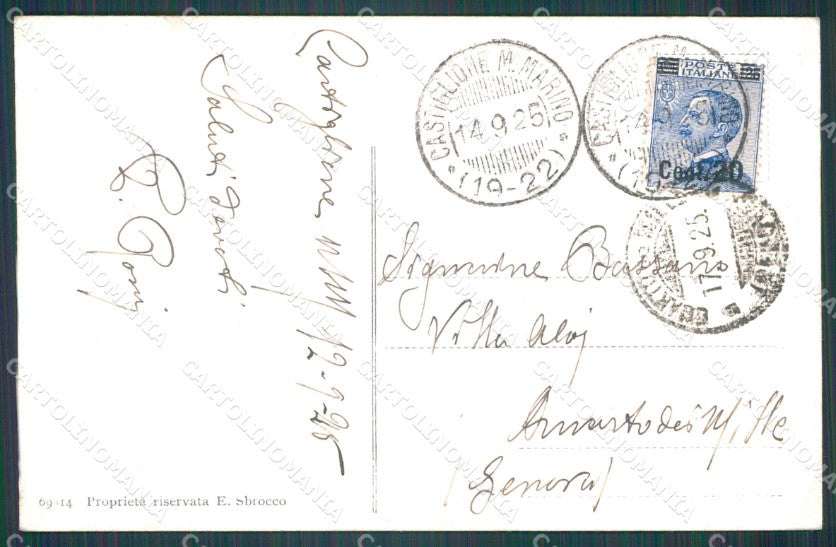 Castiglione M.M. 12-9-25
Saluti devoti
CASTIGLIONE M. MARINO
14.9.25
(19-22)
CASTIGLIONE M. MARINO
14.9.25
(19-22)
POSTE
ITALIANE
Cent. 20
QUARTO
17.9.25.
Signorine Bassano
Villa Aloj
Quarto dei Mille
(Genova)
69-14 Proprietà riservata E. Sbrocco
CARTOLINOMANIA